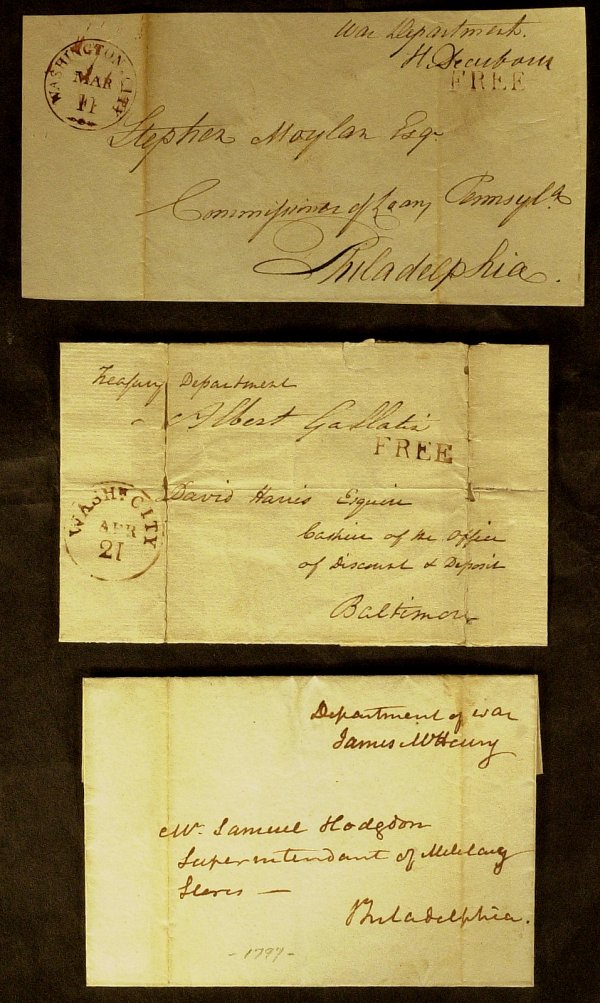 War Department.
H. Dearborn
FREE
WASHINGTON CITY
MAR
11
Stephen Moylan Esqr.
Commissioner of Loans, Pennsylva
Philadelphia.
Treasury Department
Albert Gallatin
FREE
WASHN. CITY
APR
21
David Harris Esquire
Cashier of the Office
of Discount & Deposit
Baltimore
Department of war
James McHenry
Mr. Samuel Hodgdon
Superintendant of Military
Stores —
Philadelphia.
- 1797 -